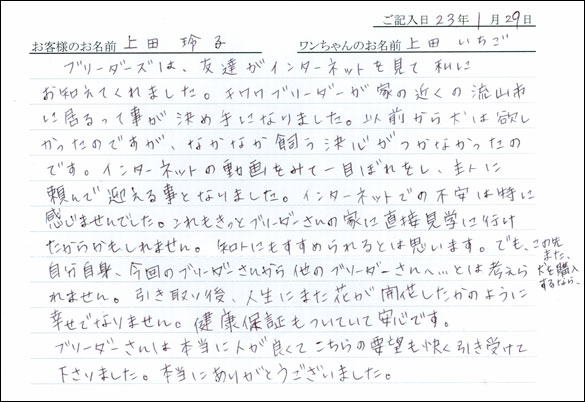 ご記入日 23年 1月 29日
お客様のお名前 上田 玲子 ワンちゃんのお名前 上田 いちご
ブリーダーズは、友達がインターネットを見て私に
お知えてくれました。チワワブリーダーが家の近くの流山市
に居るって事が決め手になりました。以前から犬は欲し
かったのですが、なかなか飼う決心がつかなかったの
です。インターネットの動画をみて一目ぼれをし、主人に
頼んで迎える事となりました。インターネットでの不安は特に
感じませんでした。これもきっとブリーダーさんの家に直接見学に行け
たからかもしれません。知人にもすすめられるとは思います。でも、この先
また、
犬を購入
するなら、
自分自身、今回のブリーダーさんから他のブリーダーさんへ…とは考えら
れません。引き取り後、人生にまた花が開花したかのように
幸せでなりません。健康保証もついていて安心です。
ブリーダーさんは本当に人が良くてこちらの要望も快く引き受けて
下さりました。本当にありがとうございました。